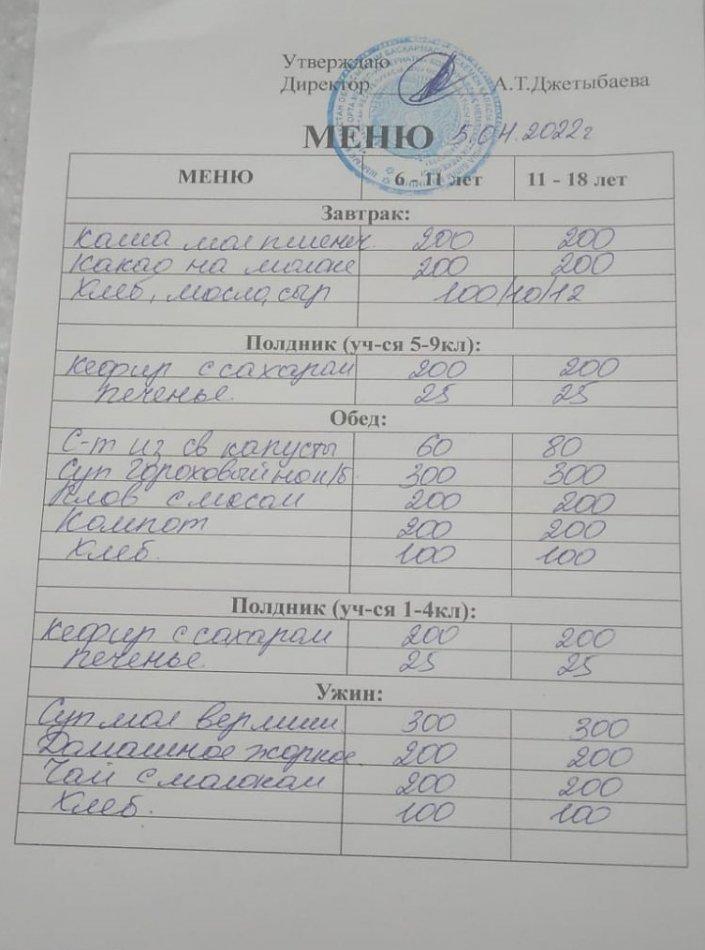 Утверждаю
Директор А.Т.Джетыбаева
МЕНЮ 5.04.2022г
МЕНЮ 6 - 11 лет 11 - 18 лет
Завтрак:
Каша мол пшенич. 200 200
Какао на молоке 200 200
Хлеб, масло, сыр 100/10/12
Полдник (уч-ся 5-9кл):
Кефир с сахаром 200 200
печенье. 25 25
Обед:
С-т из св капусты 60 80
Суп Гороховый на к/б 300 300
Плов с мясом 200 200
Компот 200 200
Хлеб. 100 100
Полдник (уч-ся 1-4кл):
Кефир с сахаром 200 200
печенье. 25 25
Ужин:
Суп мол вермиш. 300 300
Домашное жаркое. 200 200
Чай с молоком 200 200
Хлеб. 100 100